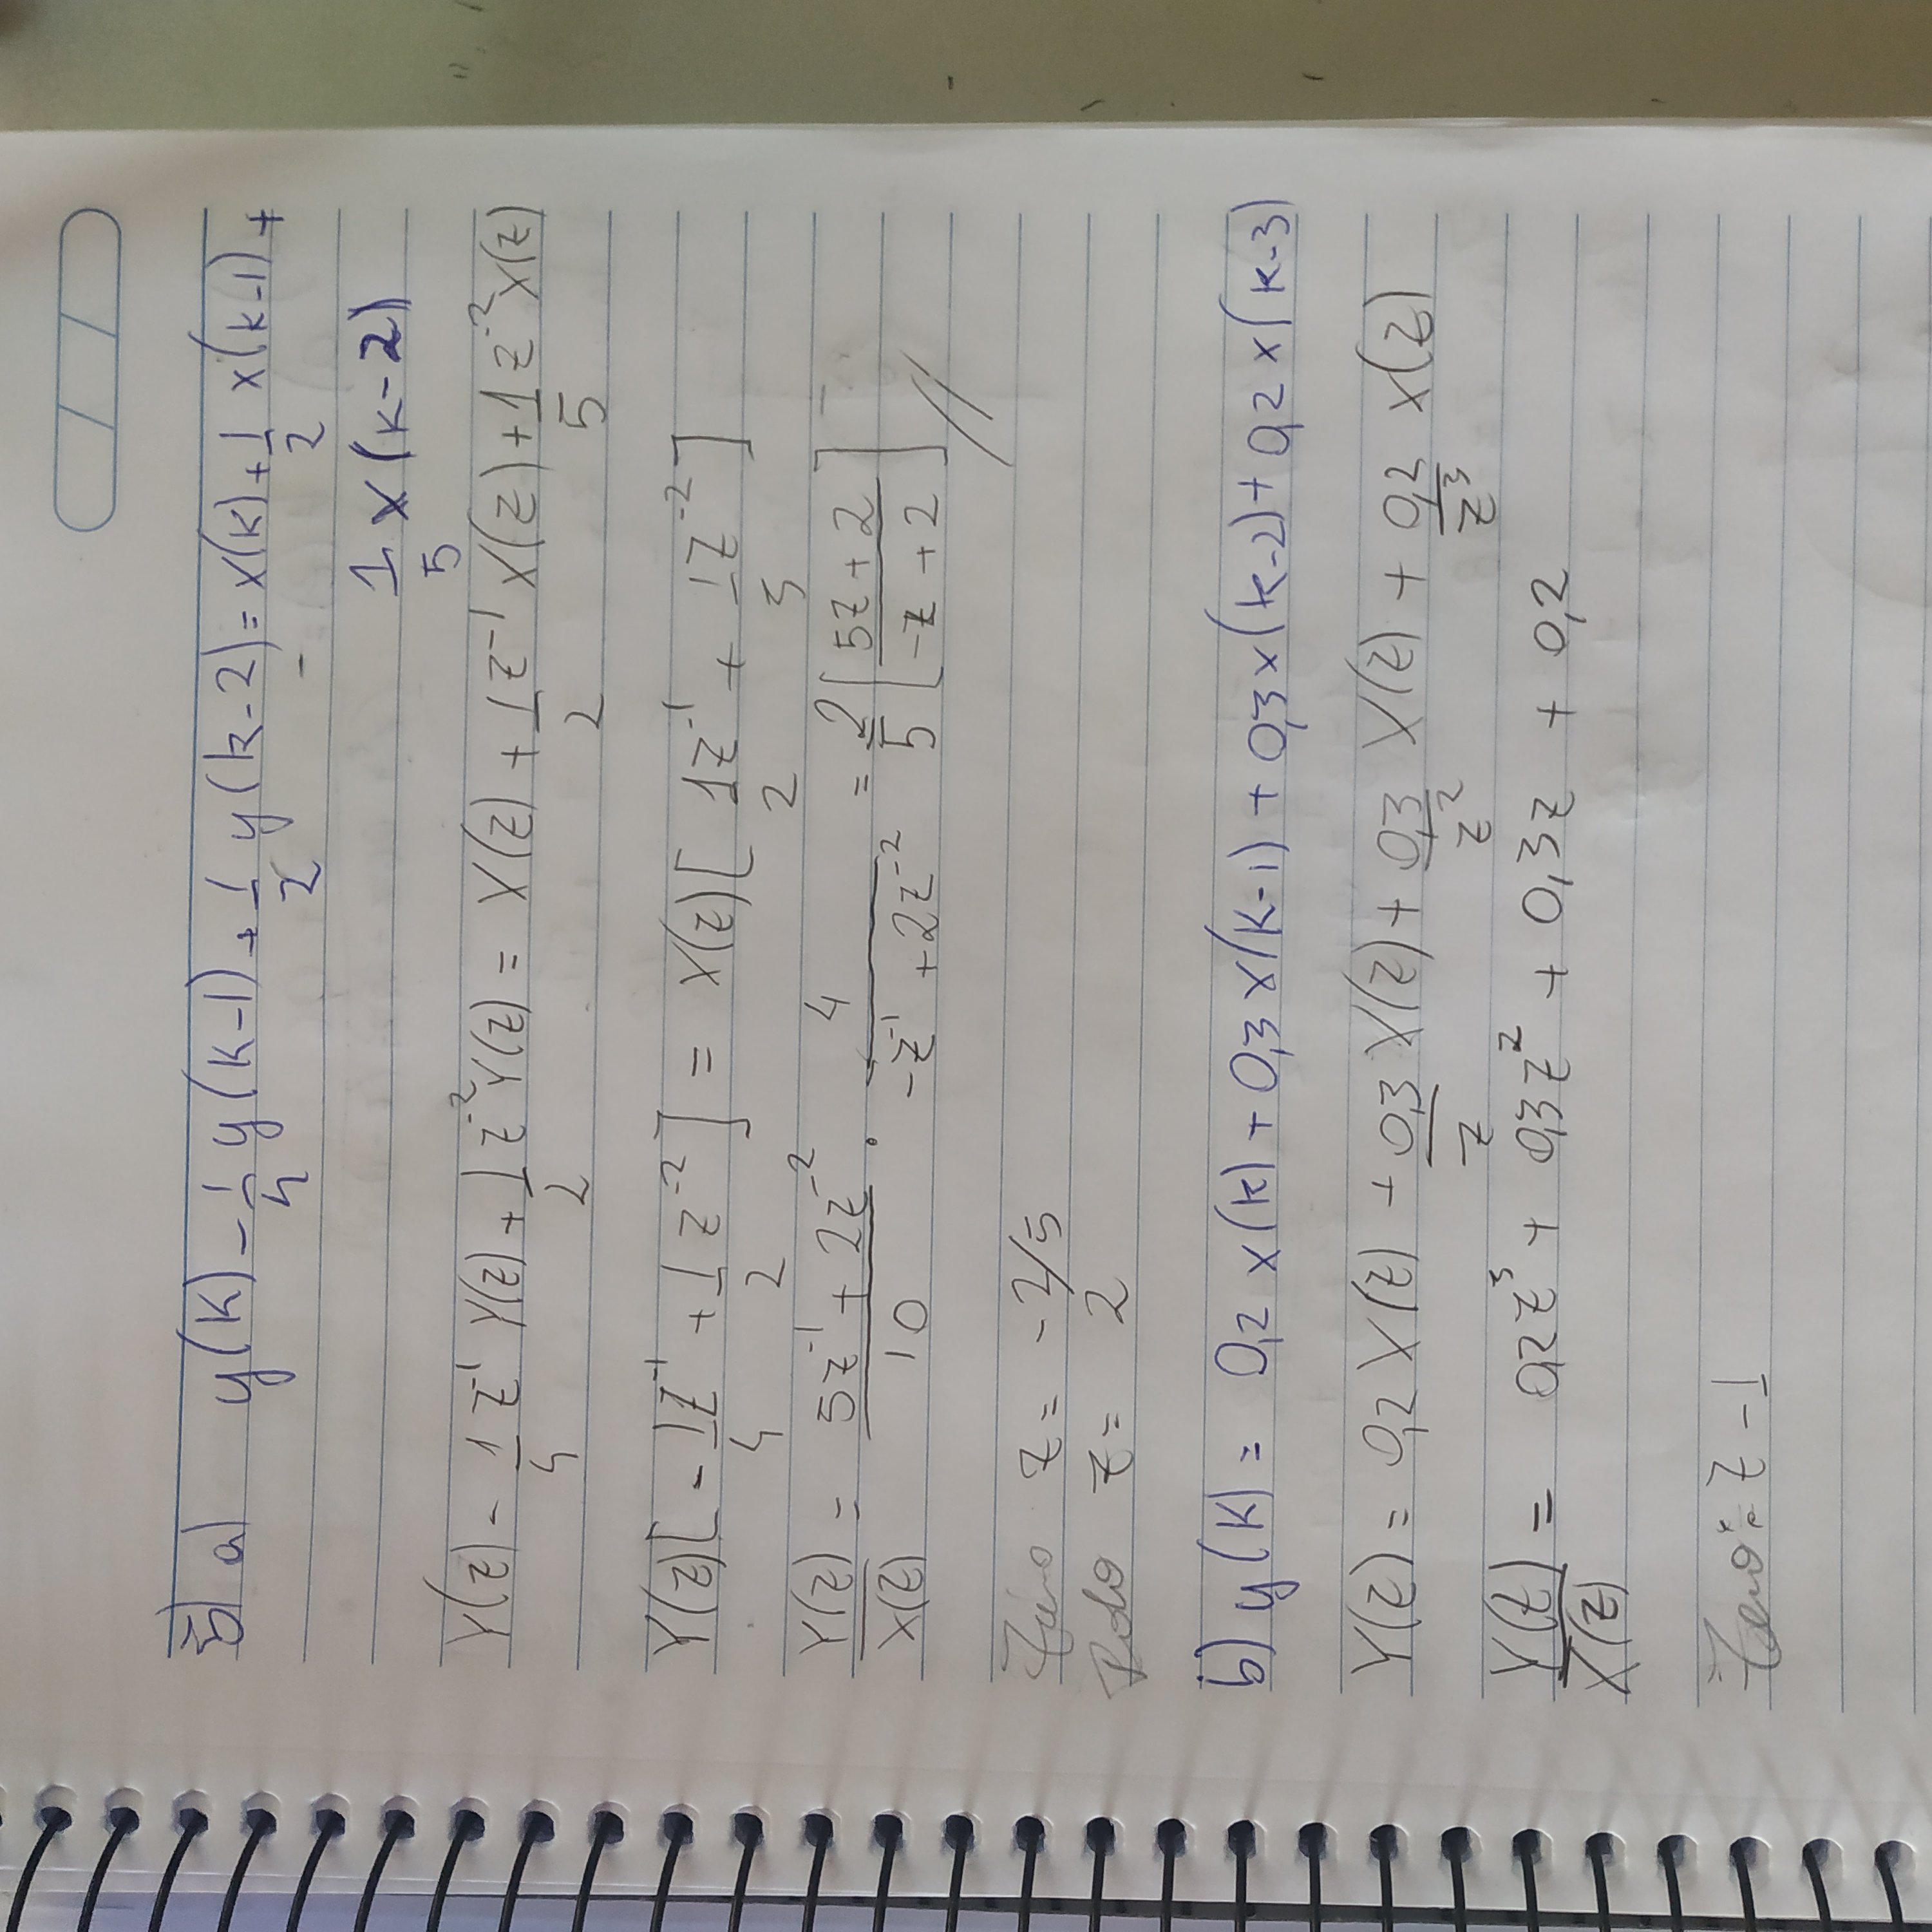 5) a) y(k) - 1/4 y(k-1) + 1/2 y(k-2) = x(k) + 1/2 x(k-1) +
1/5 x(k-2)
Y(z) - 1/4 z^-1 Y(z) + 1/2 z^-2 Y(z) = X(z) + 1/2 z^-1 X(z) + 1/5 z^-2 X(z)
Y(z)[ - 1/4 z^-1 + 1/2 z^-2 ] = X(z)[ 1/2 z^-1 + 1/5 z^-2 ]
Y(z)/X(z) = (5z^-1 + 2z^-2)/10 . 4/(-z^-1 + 2z^-2) = 2/5 [ (5z + 2)/(-z + 2) ] //
Zero z = -2/5
Polo z = 2
b) y(k) = 0,2 x(k) + 0,3 x(k-1) + 0,3 x(k-2) + 0,2 x(k-3)
Y(z) = 0,2 X(z) + 0,3/z X(z) + 0,3/z^2 X(z) + 0,2/z^3 X(z)
Y(z)/X(z) = 0,2z^3 + 0,3z^2 + 0,3z + 0,2
Zero: z - 1